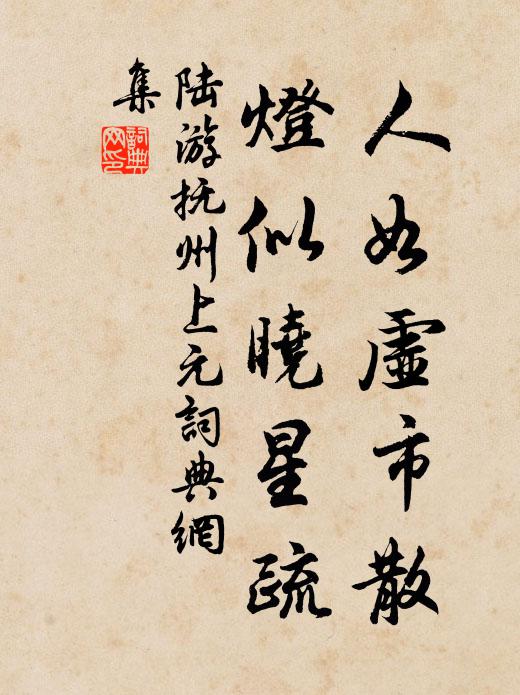 人如虛市散
燈似曉星疏
陆游抚州上元詞典網
集
詞典
网印